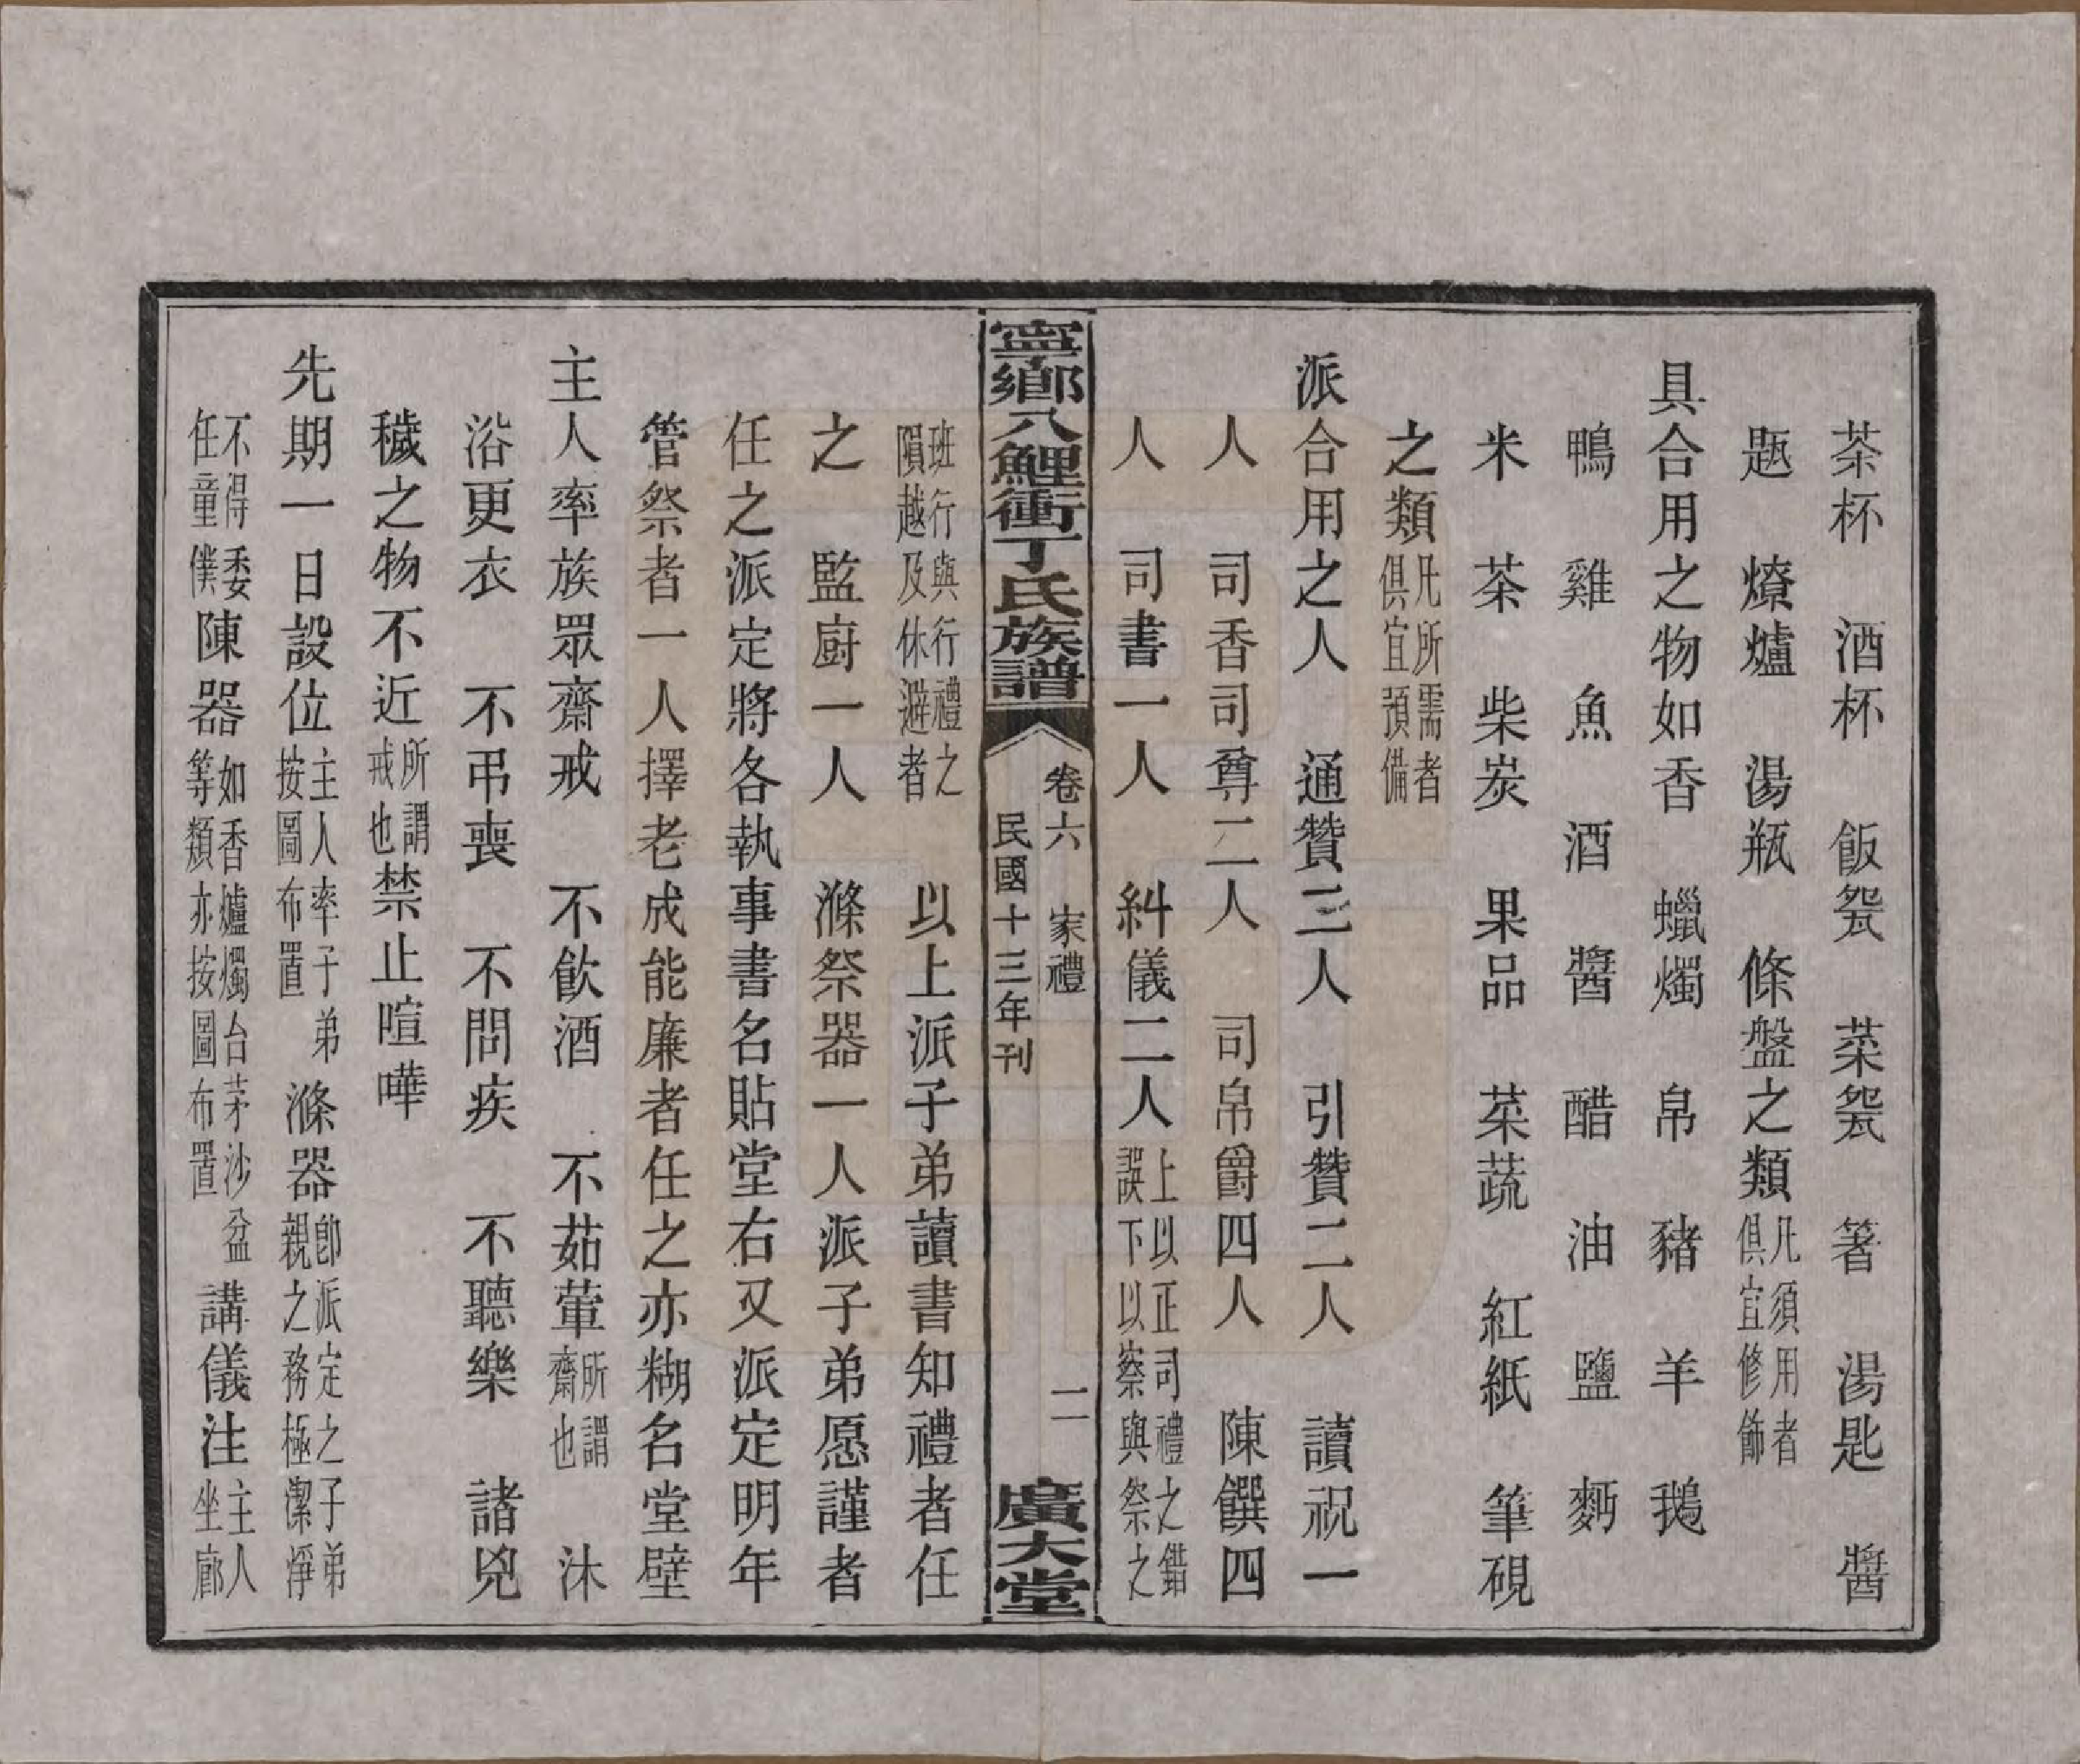 茶杯　酒杯　飯盌　菜盌　箸　湯匙　醬
瓯　燎爐　湯瓶　條盤之類凡須用者俱宜修飾
具合用之物如香　蠟燭　帛　豬　羊　鵝
鴨　雞　魚　酒　醬　醋　油　鹽　麪
米　茶　柴炭　果品　菜蔬　紅紙　筆硯
之類凡所需者俱宜預備
派合用之人　通贊三人　引贊二人　讀祝一
人　司香司尊二人　司帛爵四人　陳饌四
人　司書一人　糾儀二人上以正司禮之錯誤下以察與祭之
寧鄉八鯉衝丁氏族譜
卷六　家禮　二
民國十三年刊
廣大堂
班行與行禮之隕越及休避者　以上派子弟讀書知禮者任
之　監廚一人　滌祭器一人派子弟愿謹者
任之派定將各執事書名貼堂右又派定明年
管祭者一人擇老成能廉者任之亦糊名堂壁
主人率族眾齋戒　不飲酒　不茹葷所謂齋也　沐
浴更衣　不弔喪　不問疾　不聽樂　諸兇
穢之物不近所謂戒也禁止喧嘩
先期一日設位主人率子弟按圖布置　滌器卽派定之子弟親之務極潔淨
不得委任童僕陳器如香爐燭台茅沙盆等類亦按圖布置　講儀注主人坐廊